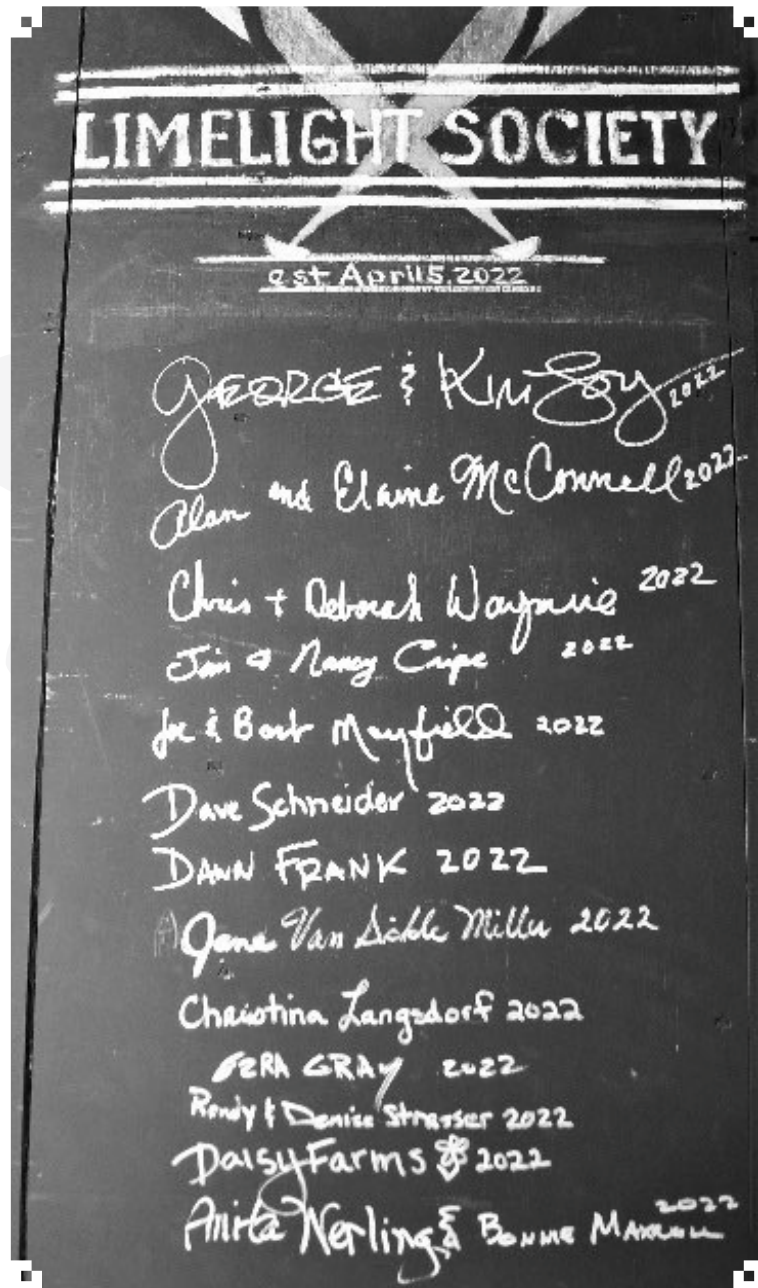 LIMELIGHT SOCIETY
est April 5, 2022
GEORGE & Kim 2022
Alan and Elaine McConnell 2022
Chris + Deborah 2022
Jim & Nancy Cripe 2022
Joe & Barb Mayfield 2022
Dave Schneider 2022
DAWN FRANK 2022
Jane Van Sickle Miller 2022
Christina Langsdorf 2022
EZRA GRAY 2022
Randy & Denise Strasser 2022
Daisy Farms 2022
Anita Nerling & BONNIE 2022